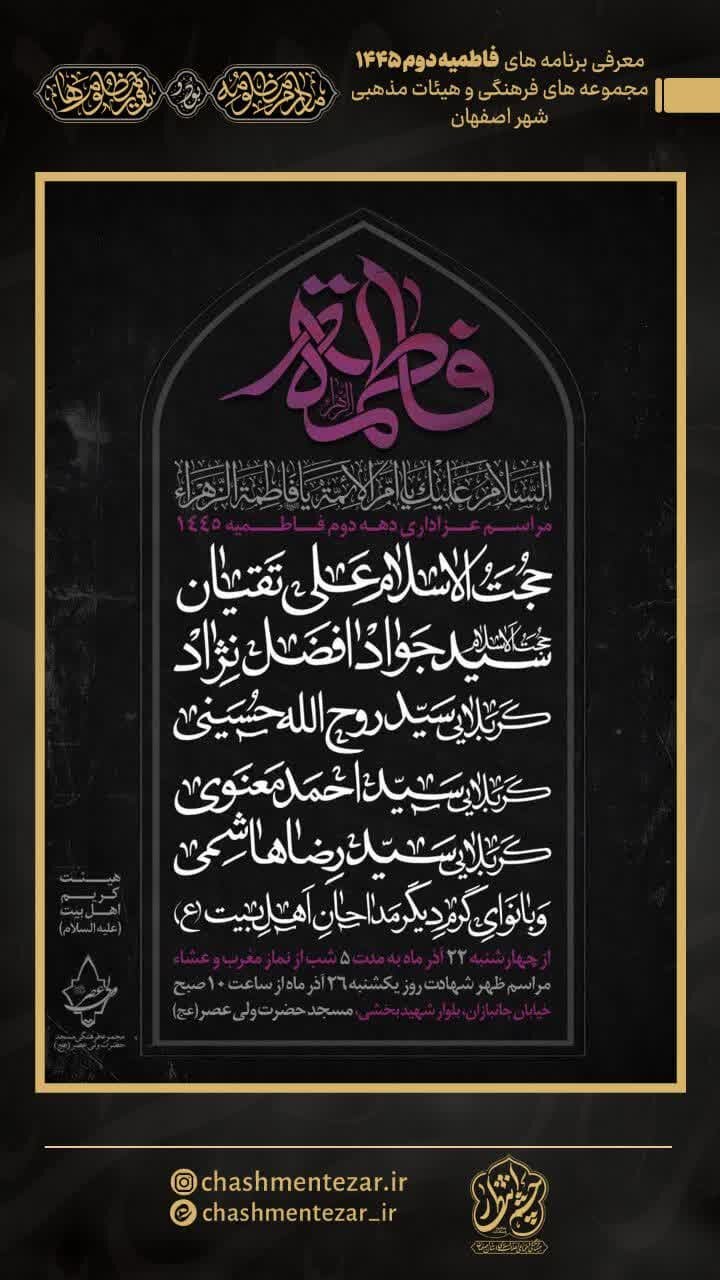 معرفی برنامه های فاطمیه دوم ۱۴۴۵
مجموعه های فرهنگی و هیئات مذهبی
شهر اصفهان
مادرم مظلومه بود و
فاطمة
الزهراء
السلام عليك يا ام الائمة يا فاطمة الزهراء
مراسم عزاداری دهه دوم فاطمیه ۱۴٤٥
حجت الاسلام علی تقیان
حجت الاسلام سید جواد افضل نژاد
کربلایی سید روح الله حسینی
کربلایی سید احمد معنوی
کربلایی سید رضا هاشمی
و با نوای گرم دیگر مداحان اهل بیت (ع)
از چهارشنبه ۲۲ آذر ماه به مدت ۵ شب از نماز مغرب و عشاء
مراسم ظهر شهادت روز یکشنبه ۲۶ آذر ماه از ساعت ۱۰ صبح
خیابان جانبازان، بلوار شهید بخشی، مسجد حضرت ولی عصر (عج)
هیئت
کریم
اهل بیت
(علیه السلام)
مجموعه فرهنگی مسجد
حضرت ولی عصر (عج)
chashmentezar.ir
chashmentezar_ir
چشم انتظار